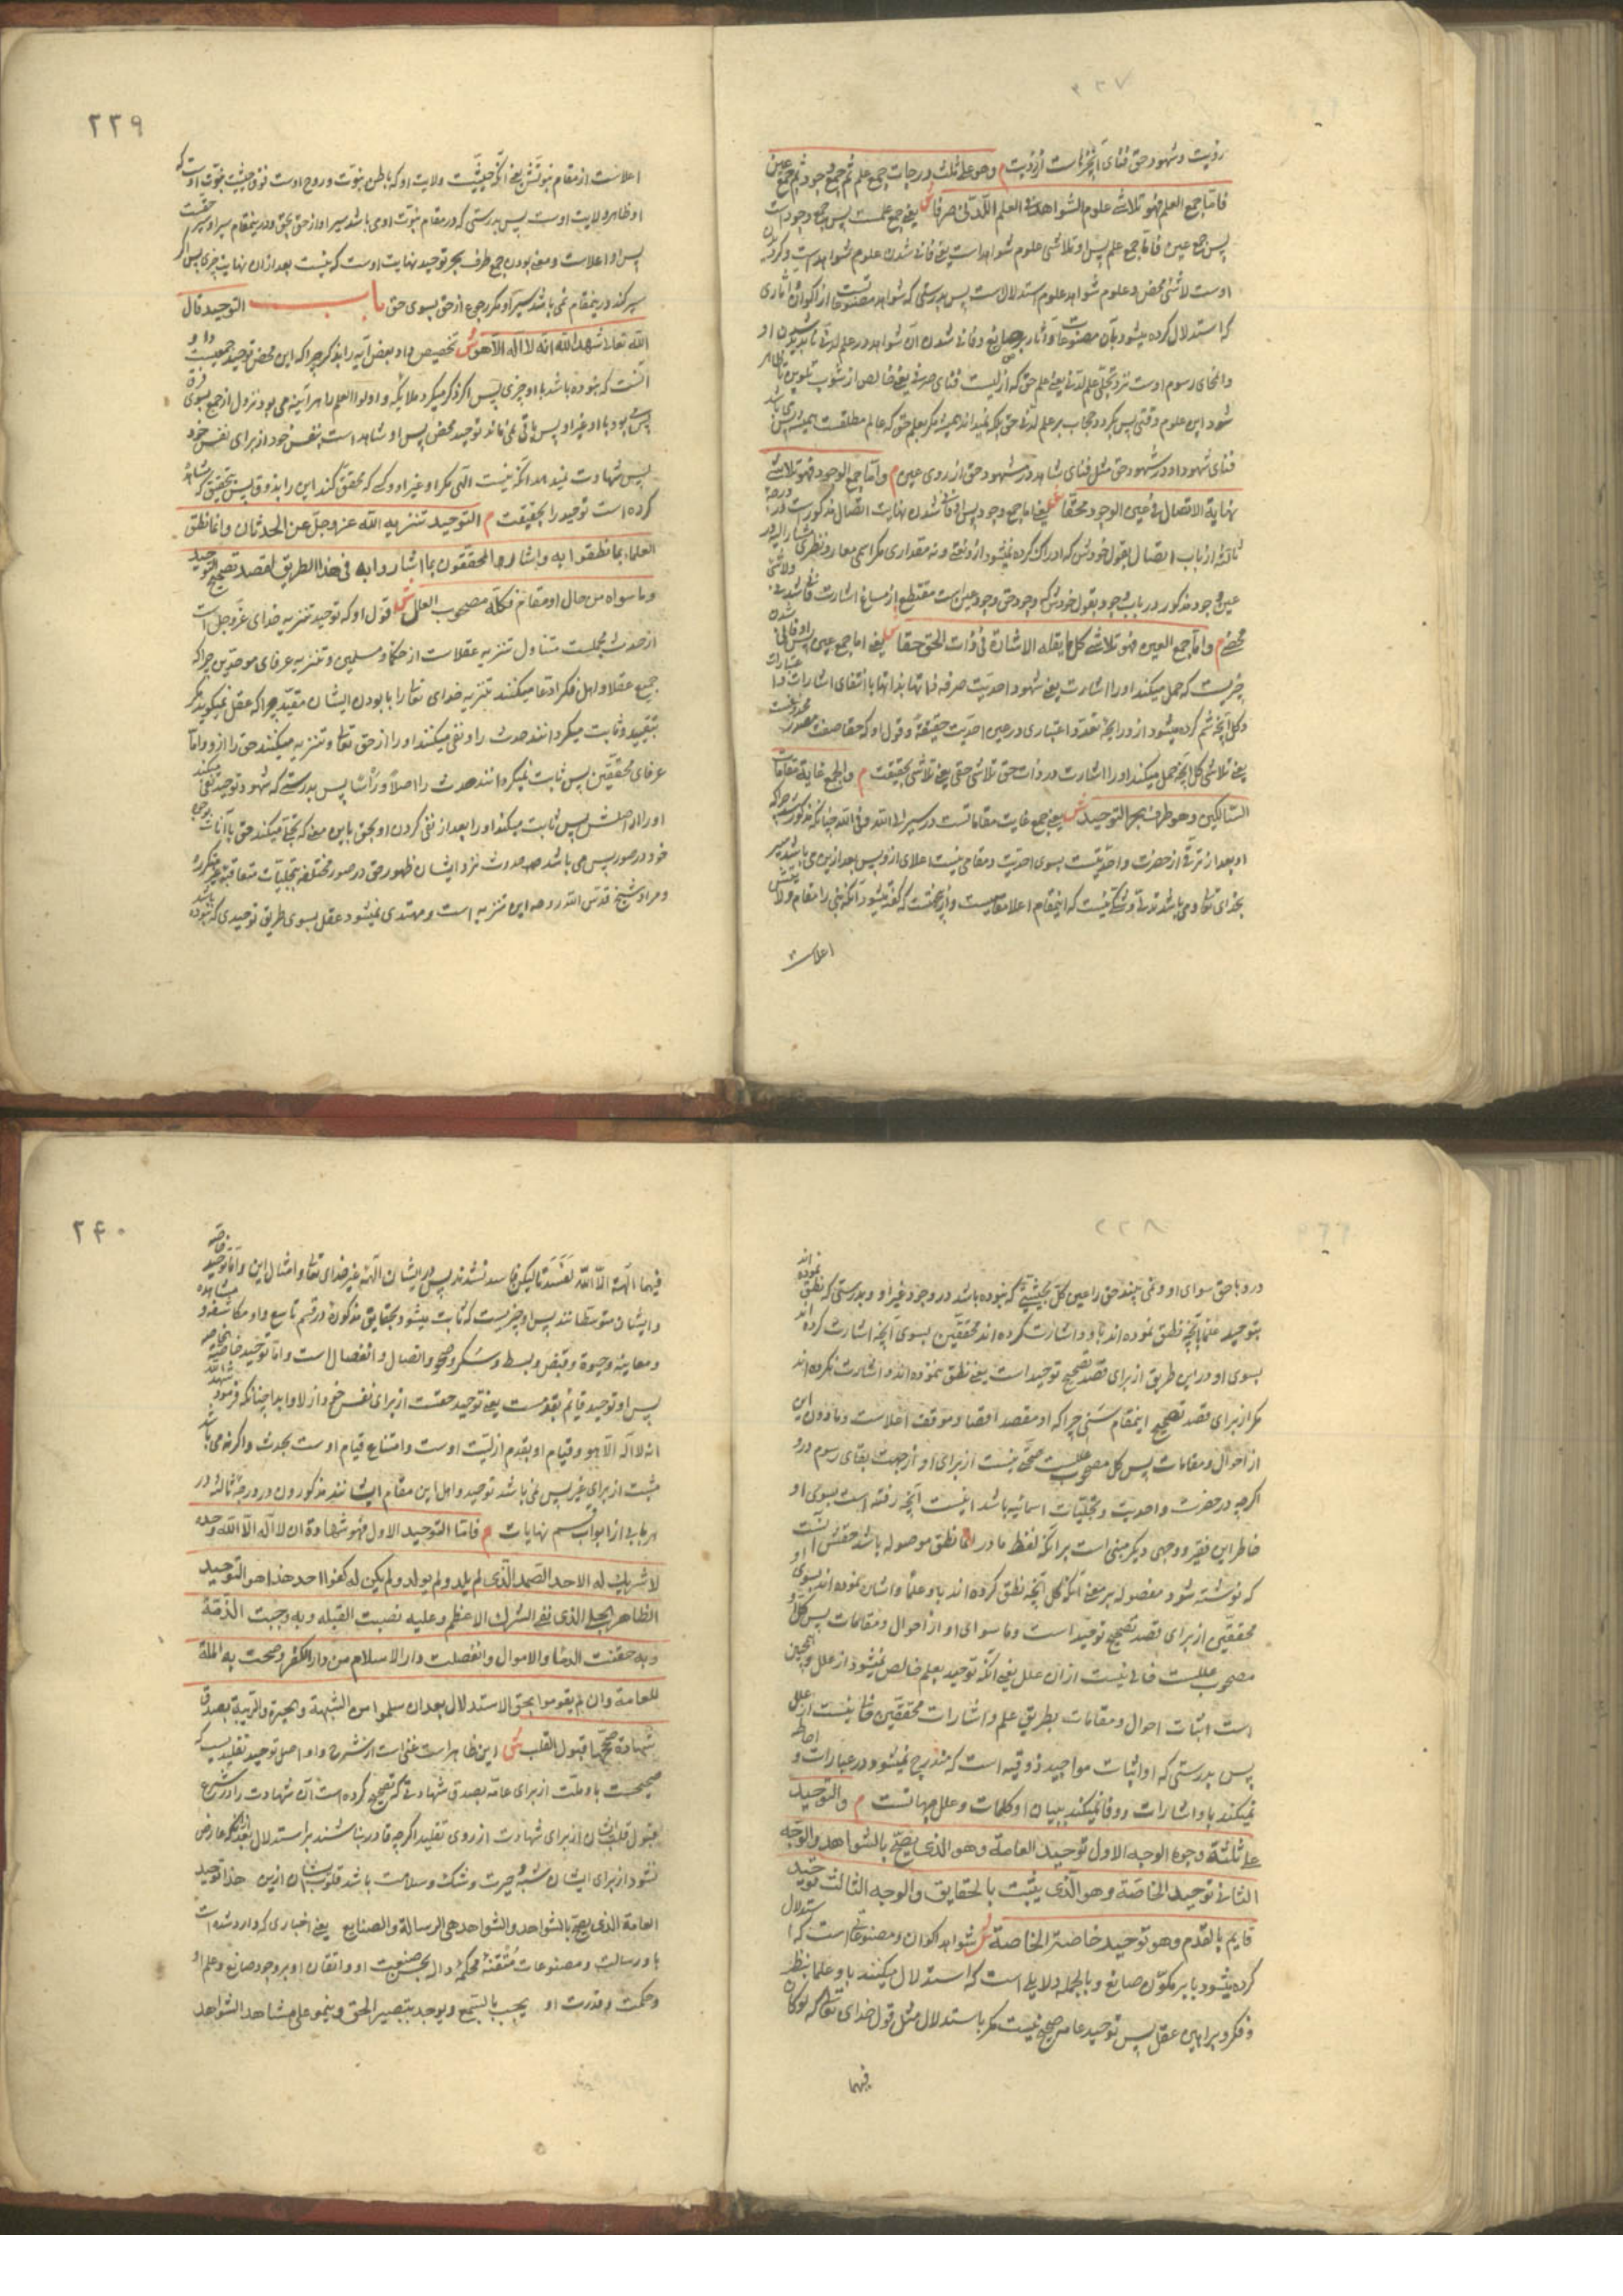 رؤیت و شهود حق فنای است از رؤیت م وهو علی ثلث درجات جمع علم ثم جمع وجود ثم جمع عین
فاما جمع العلم فهو تلاشی علوم الشواهد فی العلم اللدنی صرفا ش یعنی جمع علمست پس جمع وجود است
پس جمع عین فاما جمع علم پس او تلاشی علوم شواهد است یعنی فانی شدن علوم شواهدست
اوست لاشئ محض و علوم شواهد علوم استدلال ست پس بدرستی که شواهد مصنوعات است از اکوان و آثاری
که استدلال کرده میشود بآن مصنوعات و آثار بر صانع و فانی شدن آن شواهد در علم لدنی
و انمحای رسوم اوست نزد تجلی علم لدنی یعنی علم حق که ازلیست فنای صرف یعنی خالص از شوب تلوین
شود این علوم وقتی پس حجاب بر علم لدنی حق
فنای شهود او در شهود حق مثل فنای شاهد در مشهود حق از روی عین م واما جمع الوجود فهو تلاشی
نهایة الاتصال فی عین الوجود محقا ش یعنی اما جمع وجود پس او فانی شدن نهایت اتصال مذکورست
ثالثه از باب اتصال بقول خودش که ادراک کرده نمیشود از و نعتی و نه مقداری مگر اسمی معار و نظری مشار الیه
عین وجود مذکور در باب وجود بقول خودش که وجود حق وجود عین است منقطع از مساغ اشارت
محض م واما جمع العین فهو تلاشی کل ما یقله الاشارة فی ذات الحق حقا ش یعنی اما جمع عین
چیزیست که حمل میکند او را اشارت یعنی شهود احدیت صرفه
یعنی تلاشی کل آنچه حمل میکند او را اشارت در ذات حق تلاشی حقی یعنی تلاشی بحقیقت م والجمع غایة مقامات
السالکین وهو طرف بحر التوحید ش یعنی جمع غایت مقاماتست در سیر الی الله و فی الله چنانکه مذکور شد
او بعد از ترقی از حضرت واحدیتست بسوی احدیت و مقامی نیست اعلای از و پس بعد ازین می باشد سیر
اعلاست
۲۳۹
اعلاست از مقام نبوتش یعنی آنکه حیثیت ولایت او که باطن نبوت و روح اوست فوق حیثیت نبوت اوست که
او ظاهر ولایت اوست پس بدرستی که در مقام نبوت اوی باشد سیر او از حق بحق و در ینمقام سیر او
پس او اعلاست و معنی بودن جمع طرف بحر توحید نهایت اوست که نیست بعد از ان نهایت چیزی پس اگر
سیر کند در ینمقام نمی باشد سیر او مگر رجوع از حق بسوی حق باب التوحید قال
الله تعالی شهد الله انه لا اله الا هو ش تخصیص داد بعض آیه را بذکر چرا که این محض توحید جمعیست
آنست که نبوده باشد با او چیزی پس اگر ذکر میکرد ملایکه و اولوا العلم را هر آینه می بود نزول از جمع بسوی
پس می بود با او غیر او پس باقی نمی ماند توحید محض پس او شاهد است بنفس خود از برای نفس خود
پس شهادت نمیدهد آنکه نیست الهی مگر او غیر او و کسی که تحقق کند این را بذوق پس بتحقیق که مشاهده
کرده است توحید را بحقیقت م التوحید تنزیه الله عز وجل عن الحدثان وانما نطق
العلماء بما نطقوا به واشار المحققون بما اشاروا به فی هذا الطریق لقصد تصحیح التوحید
وما سواه من حال او مقام فکله مصحوب العلل ش قول او که توحید تنزیه خدای عز وجل است
از حدوث مجملیست متناول تنزیه عقلاست از حکما و مسلمین و تنزیه عرفای موحدین چرا که
جمیع عقلا و اهل فکر ادعا میکنند تنزیه خدای تعالی را با بودن ایشان مقید چرا که عقل نمیگوید مگر
بتقیید و ثابت میگردانند حدوث را و نفی میکنند او را از حق تعالی و تنزیه میکنند حق را از و واما
عرفای محققین پس ثابت نمیگردانند حدوث را اصلا و رأسا پس بدرستی که شهود توحید نفی میکند
او را از اصلش پس ثابت میکند او را بعد از نفی کردن او بحق باین معنی که تجلی میکند حق
خود در صور پس می باشد حدوث نزد ایشان ظهور حق در صور مختلفه بتجلیات متعاقبه غیر متکرره
و مراد شیخ قدس الله روحه این تنزیه است و مهتدی نمیشود عقل بسوی طریق توحیدی که نبوده باشد
۲۳۸
درو با حق سوای او و نمی بیند حق را عین کل بحیثیتی که نبوده باشد در وجود غیر او و بدرستی که نطق نموده اند
بتوحید علما بآنچه نطق نموده اند باو و اشارت کرده اند محققین بسوی آنچه اشارت کرده اند
بسوی او در این طریق از برای قصد تصحیح توحید است یعنی نطق ننموده اند و اشارت نکرده اند
مگر از برای قصد تصحیح اینمقام سنی چرا که او مقصد اقصا و موقف اعلاست و مادون این
از احوال و مقامات پس کل مصحوب عللست صحتی نیست از برای او از جهت بقای رسوم درو
اگرچه در حضرت واحدیت و تجلیات اسمائیه باشد اینست آنچه رفته است بسوی او
خاطر این فقیر و وجهی دیگر مبنی است بر آنکه لفظ ما در انما نطق موصوله باشد حقش آنست
که نوشته شود مفصوله بر معنی آنکه کل آنچه نطق کرده اند باو علما و اشارت نموده اند بسوی او
محققین از برای قصد تصحیح توحید است و ما سوای او از احوال و مقامات پس کل او
مصحوب عللست خالی نیست از آن علل یعنی آنکه توحید بعلم خالص نمیشود از علل و همچنین
است اثبات احوال و مقامات بطریق علم و اشارات محققین خالی نیست از علل
پس بدرستی که او اثبات مواجید ذوقیه است که مندرج نمیشود در عبارات و احاطه
نمیکند باو اشارات و وفا نمیکند ببیان او کلمات و علل جهاتست م والتوحید
علی ثلثة وجوه الوجه الاول توحید العامة وهو الذی یصح بالشواهد والوجه
الثانی توحید الخاصة وهو الذی یثبت بالحقایق والوجه الثالث توحید
قایم بالقدم وهو توحید خاصة الخاصة ش شواهد اکوان و مصنوعاتی است که استدلال
کرده میشود بآن بر مکون صانع و بالجمله دلایلی است که استدلال میکنند باو علما بنظر
و فکر و براهین عقل پس توحید عامه صحیح نیست مگر باستدلال مثل قول خدای تعالی که لو کان
فیهما
۲۴۰
فیهما آلهة الا الله لفسدتا لیکن فاسد نشدند پس در ایشان آلهه غیر خدای تعالی و امثال این واما توحید خاصه
و ایشان متوسطانند پس او چیزیست که ثابت میشود بحقایق مذکوره در قسم تاسع و او مکاشفه و مشاهده
و معاینه و حیوة و قبض و بسط و سکر و صحو و اتصال و انفصال است واما توحید خاصه خاصه
پس او توحید قایم بقدمست یعنی توحید حقست از برای نفس خود ازلا و ابدا چنانکه فرمود شهد الله
انه لا اله الا هو و قیام او بقدم ازلیت اوست و امتناع قیام اوست بحدث و اگر نه می باشد
مثبت از برای غیر پس نمی باشد توحید و اهل این مقام ایشانند مذکورون در درجه ثالثه در
هر بابی از ابواب قسم نهایات م فاما التوحید الاول فهو شهادة ان لا اله الا الله وحده
لا شریک له الاحد الصمد الذی لم یلد ولم یولد ولم یکن له کفوا احد هذا هو التوحید
الظاهر الجلی الذی نفی الشرک الاعظم وعلیه نصبت القبله وبه وجبت الذمة
وبه حقنت الدماء والاموال وانفصلت دار الاسلام من دار الکفر وصحت به الملة
للعامة وان لم یقوموا بحق الاستدلال بعد ان سلموا من الشبهة والحیرة والریبة بصدق
شهادة صححها قبول القلب ش این ظاهر است غنی است از شرح و او اصل توحید تقلیدیست که
صحیحست باو ملت از برای عامه بصدق شهادتی که تصحیح کرده است آن شهادت را در شرع
قبول قلب ایشان از برای شهادت از روی تقلید اگرچه قادر نباشند بر استدلال بعد از آنکه عارض
نشود از برای ایشان شبهه و حیرت و شک و سلامت باشد قلوب ایشان ازین هذا توحید
العامة الذی یصح بالشواهد والشواهد هی الرسالة والصنایع یعنی اخباری که وارد شده است
باو رسالت و مصنوعات متقنه محکمه داله بحسن صنعیت او و اتقان او بر وجود صانع و علم او
و حکمت و قدرت او یجب بالسمع ویوجد بتبصیر الحق وینمو علی مشاهدة الشواهد